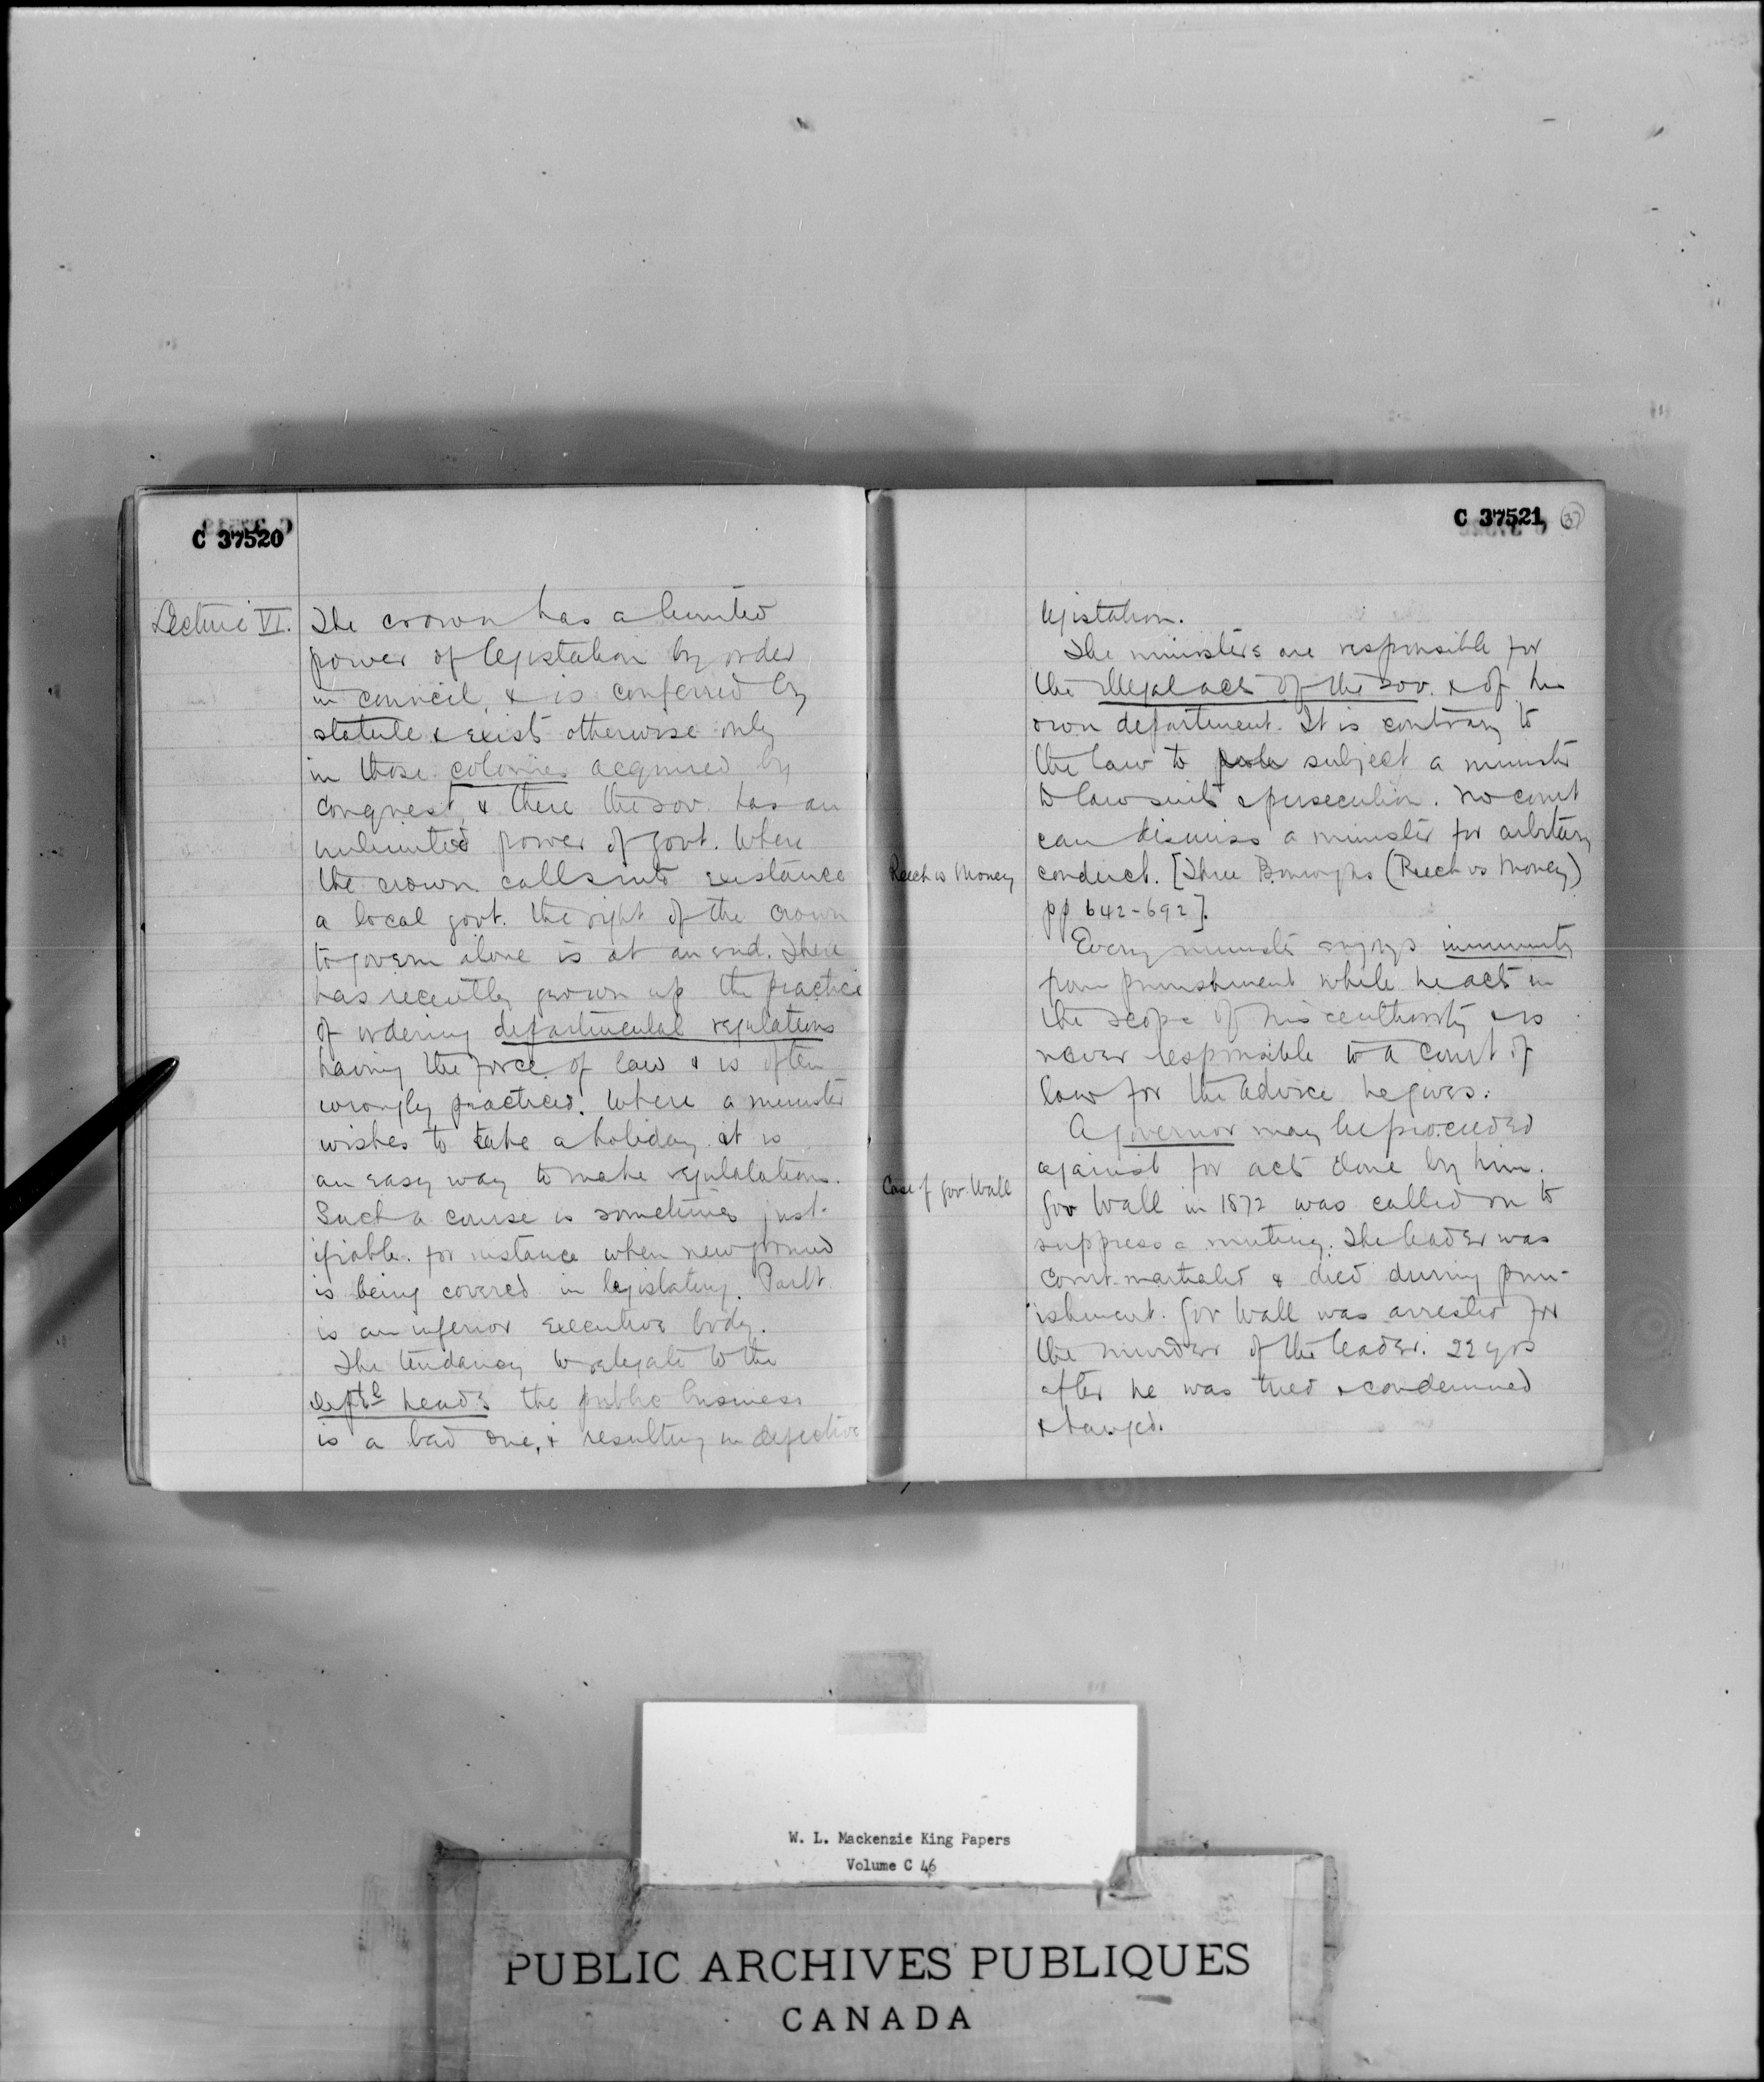 C 37520
Lecture VI.
The crown has a limited
power of legistation by order
in council, & is conferred by
statute & exists otherwise only
in those colonies acquired by
conquest, & there the sov. has an
unlimited power of govt. Where
the crown calls into existance
a local govt. the right of the crown
to govern alone is at an end. There
has recently grown up the practice
of ordering departmental regulations
having the force of law & is often
wrongly practiced. Where a minister
wishes to take a holiday it is
an easy way to make regulalations.
Such a course is sometimes just-
ifiable. for instance when new ground
is being covered in legislating. Parlt
is an inferior executive body.
The tendancy to relegate to the
deptl heads the public business
is a bad one, & resulting in defective
C 37521
37
legistation.
The ministers are responsible for
the illegal acts of the sov. & of his
own department. It is contrary to
the law to subject a minister
to lawsuits & persecution. No court
can dismiss a minister for arbitrary
Reech vs Money
conduct. [Three Boroughs (Reech vs Money)
pp 642-692].
Every minister enjoys immunity
from punishment while he acts in
the scope of his authority & is
never responsible to a court of
law for the advice he gives.
A governor may be proceeded
against for acts done by him.
Case of Gov. Wall
Gov Wall in 1872 was called on to
suppress a mutiny. The leader was
court-martialed & died during pun-
ishment. Gov Wall was arrested for
the murder of the leader. 22 yrs
after he was tried & condemned
& hanged.
W. L. Mackenzie King Papers
Volume C 46
PUBLIC ARCHIVES PUBLIQUES
CANADA